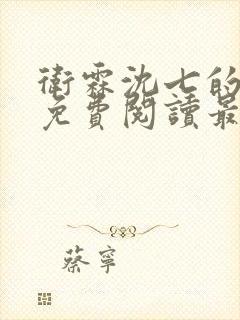 衛霖沈七的
免費閱讀最
蔡寧